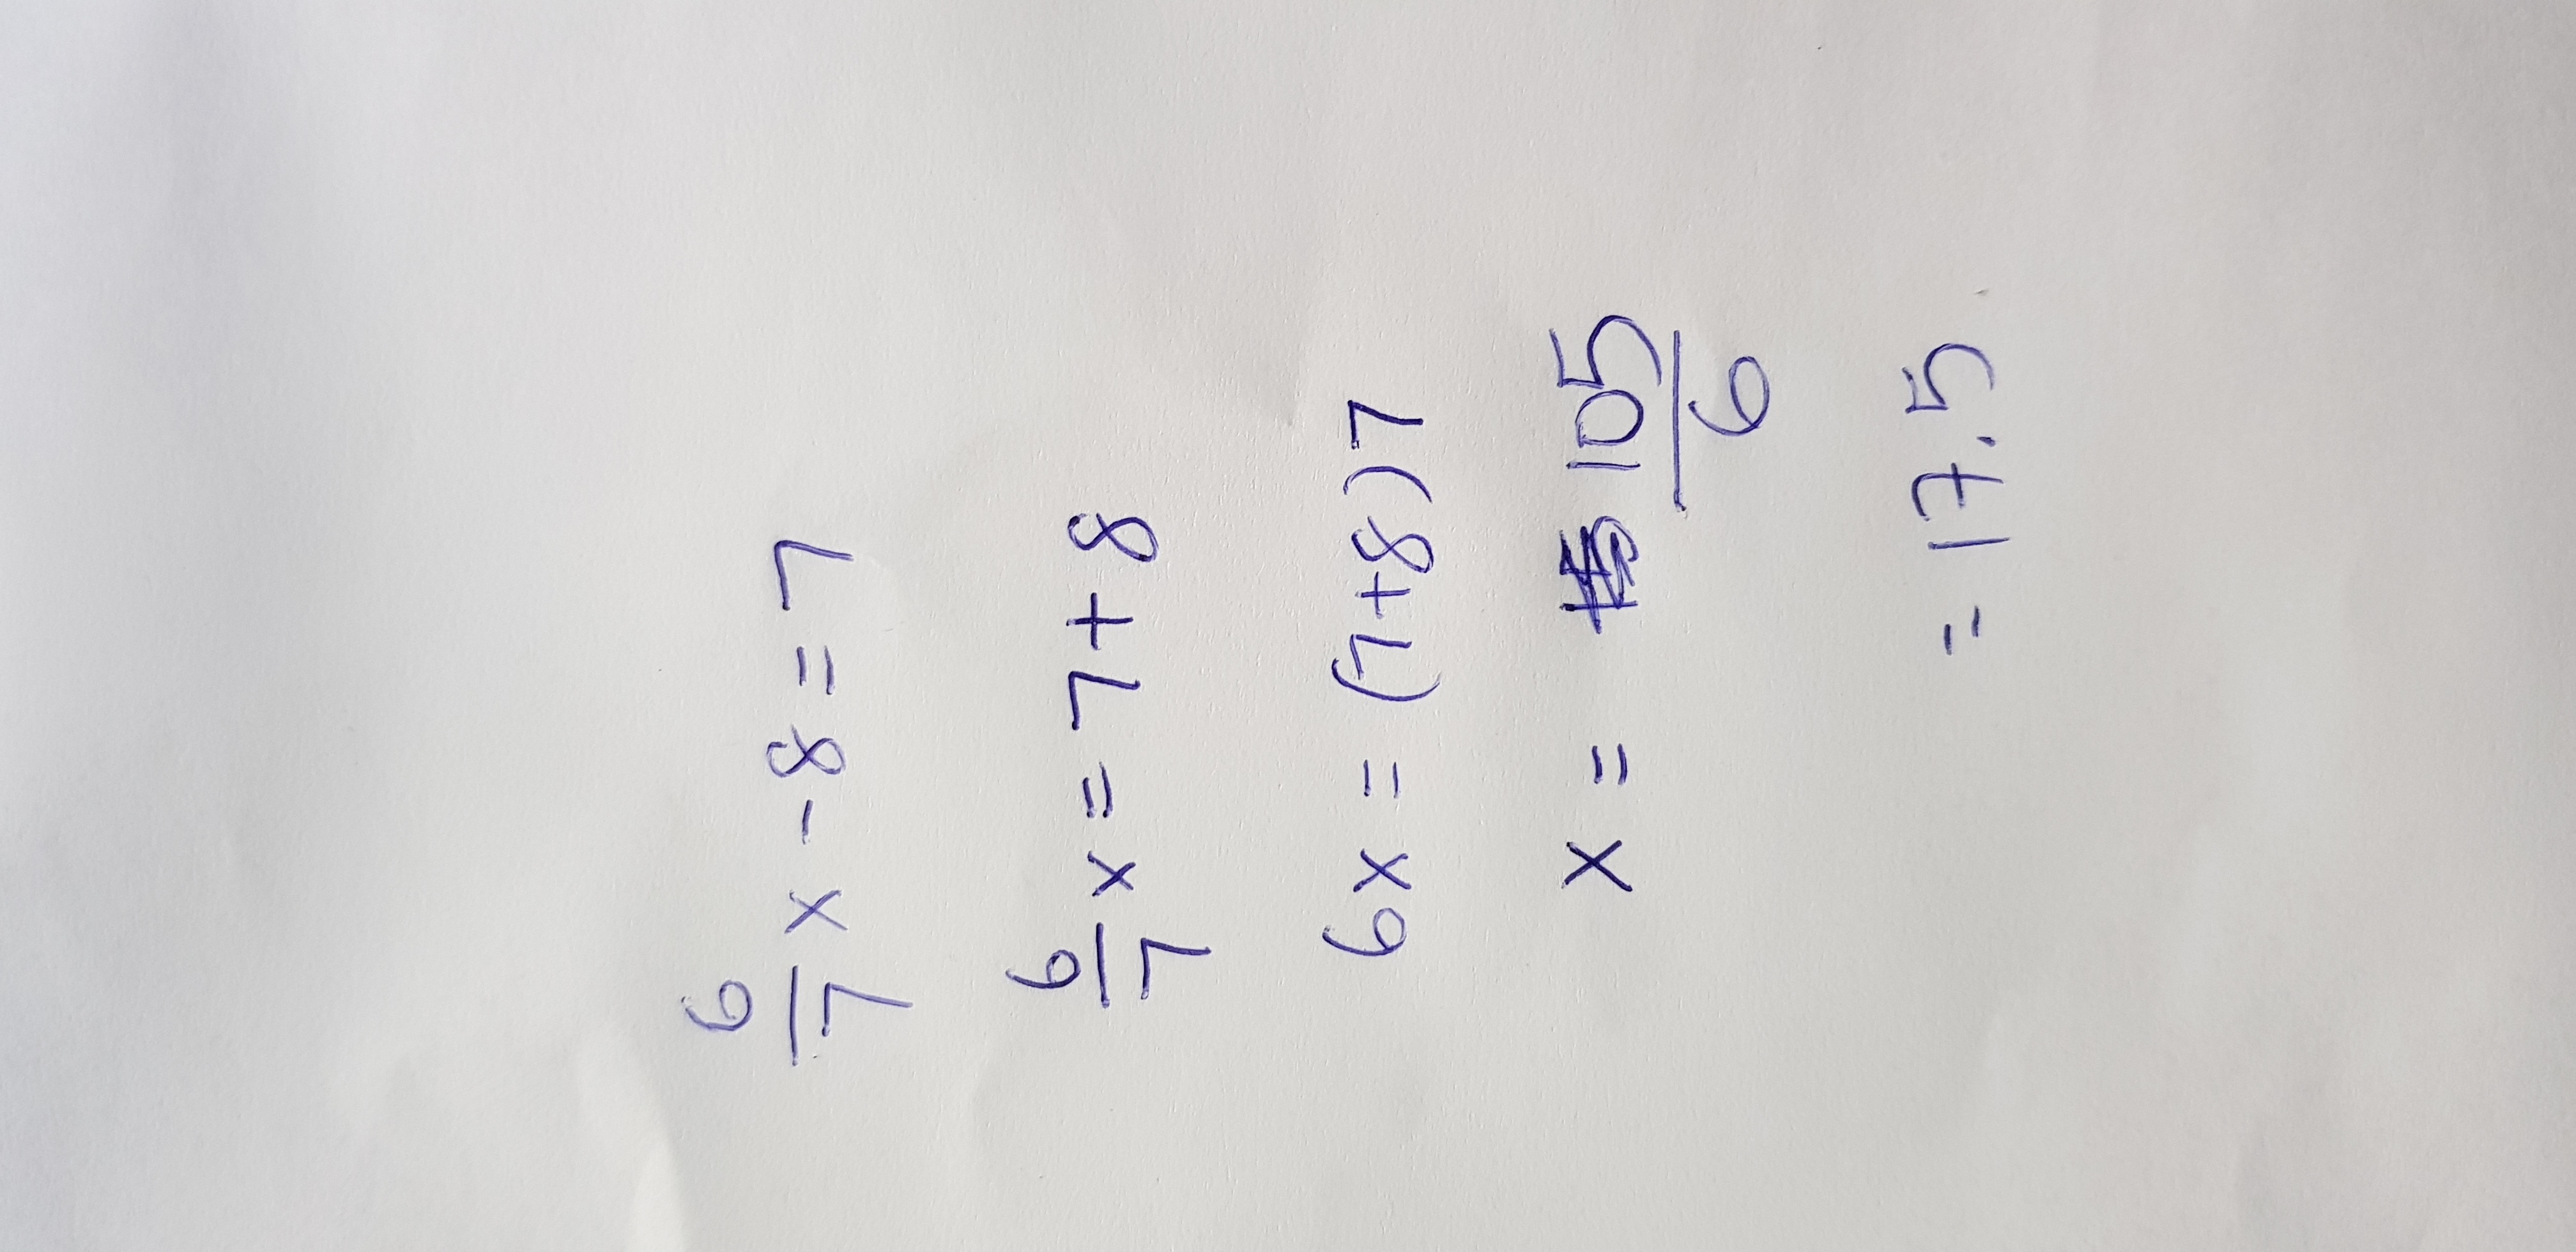 6/7 x - 8 = 7
6/7 x = 7 + 8
6x = (7+8)7
x = 105/6
= 17.5